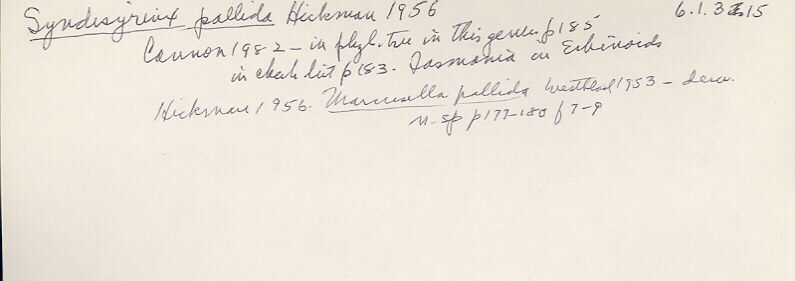 Syndesyrinx pallida Hickman 1956 6.1.3 15
Cannon 1982 – in phyl. tree in this genus p185
in check list p183. Tasmania on Echinoids
Hickman 1956. Marcusella pallida Westblad 1953 –
n. sp p177-180 f7-9